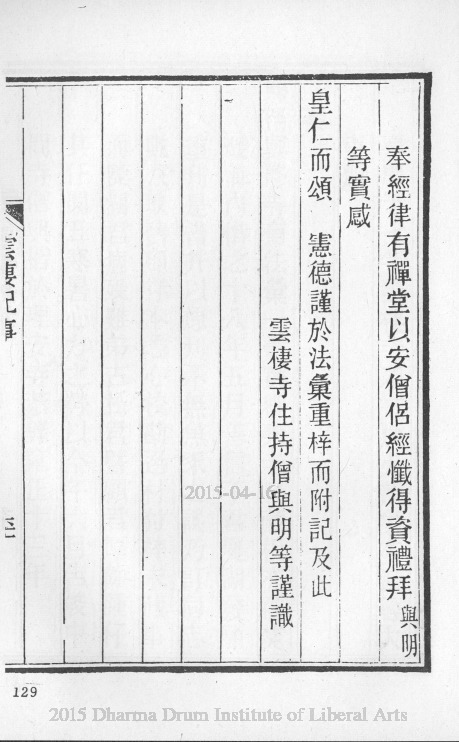 奉經律有禪堂以安僧侶經懺得資禮拜與明
等實感
皇仁而頌　憲德謹於法彙重梓而附記及此
雲棲寺住持僧與明等謹識
雲棲紀事
129
2015-04-16
2015 Dharma Drum Institute of Liberal Arts